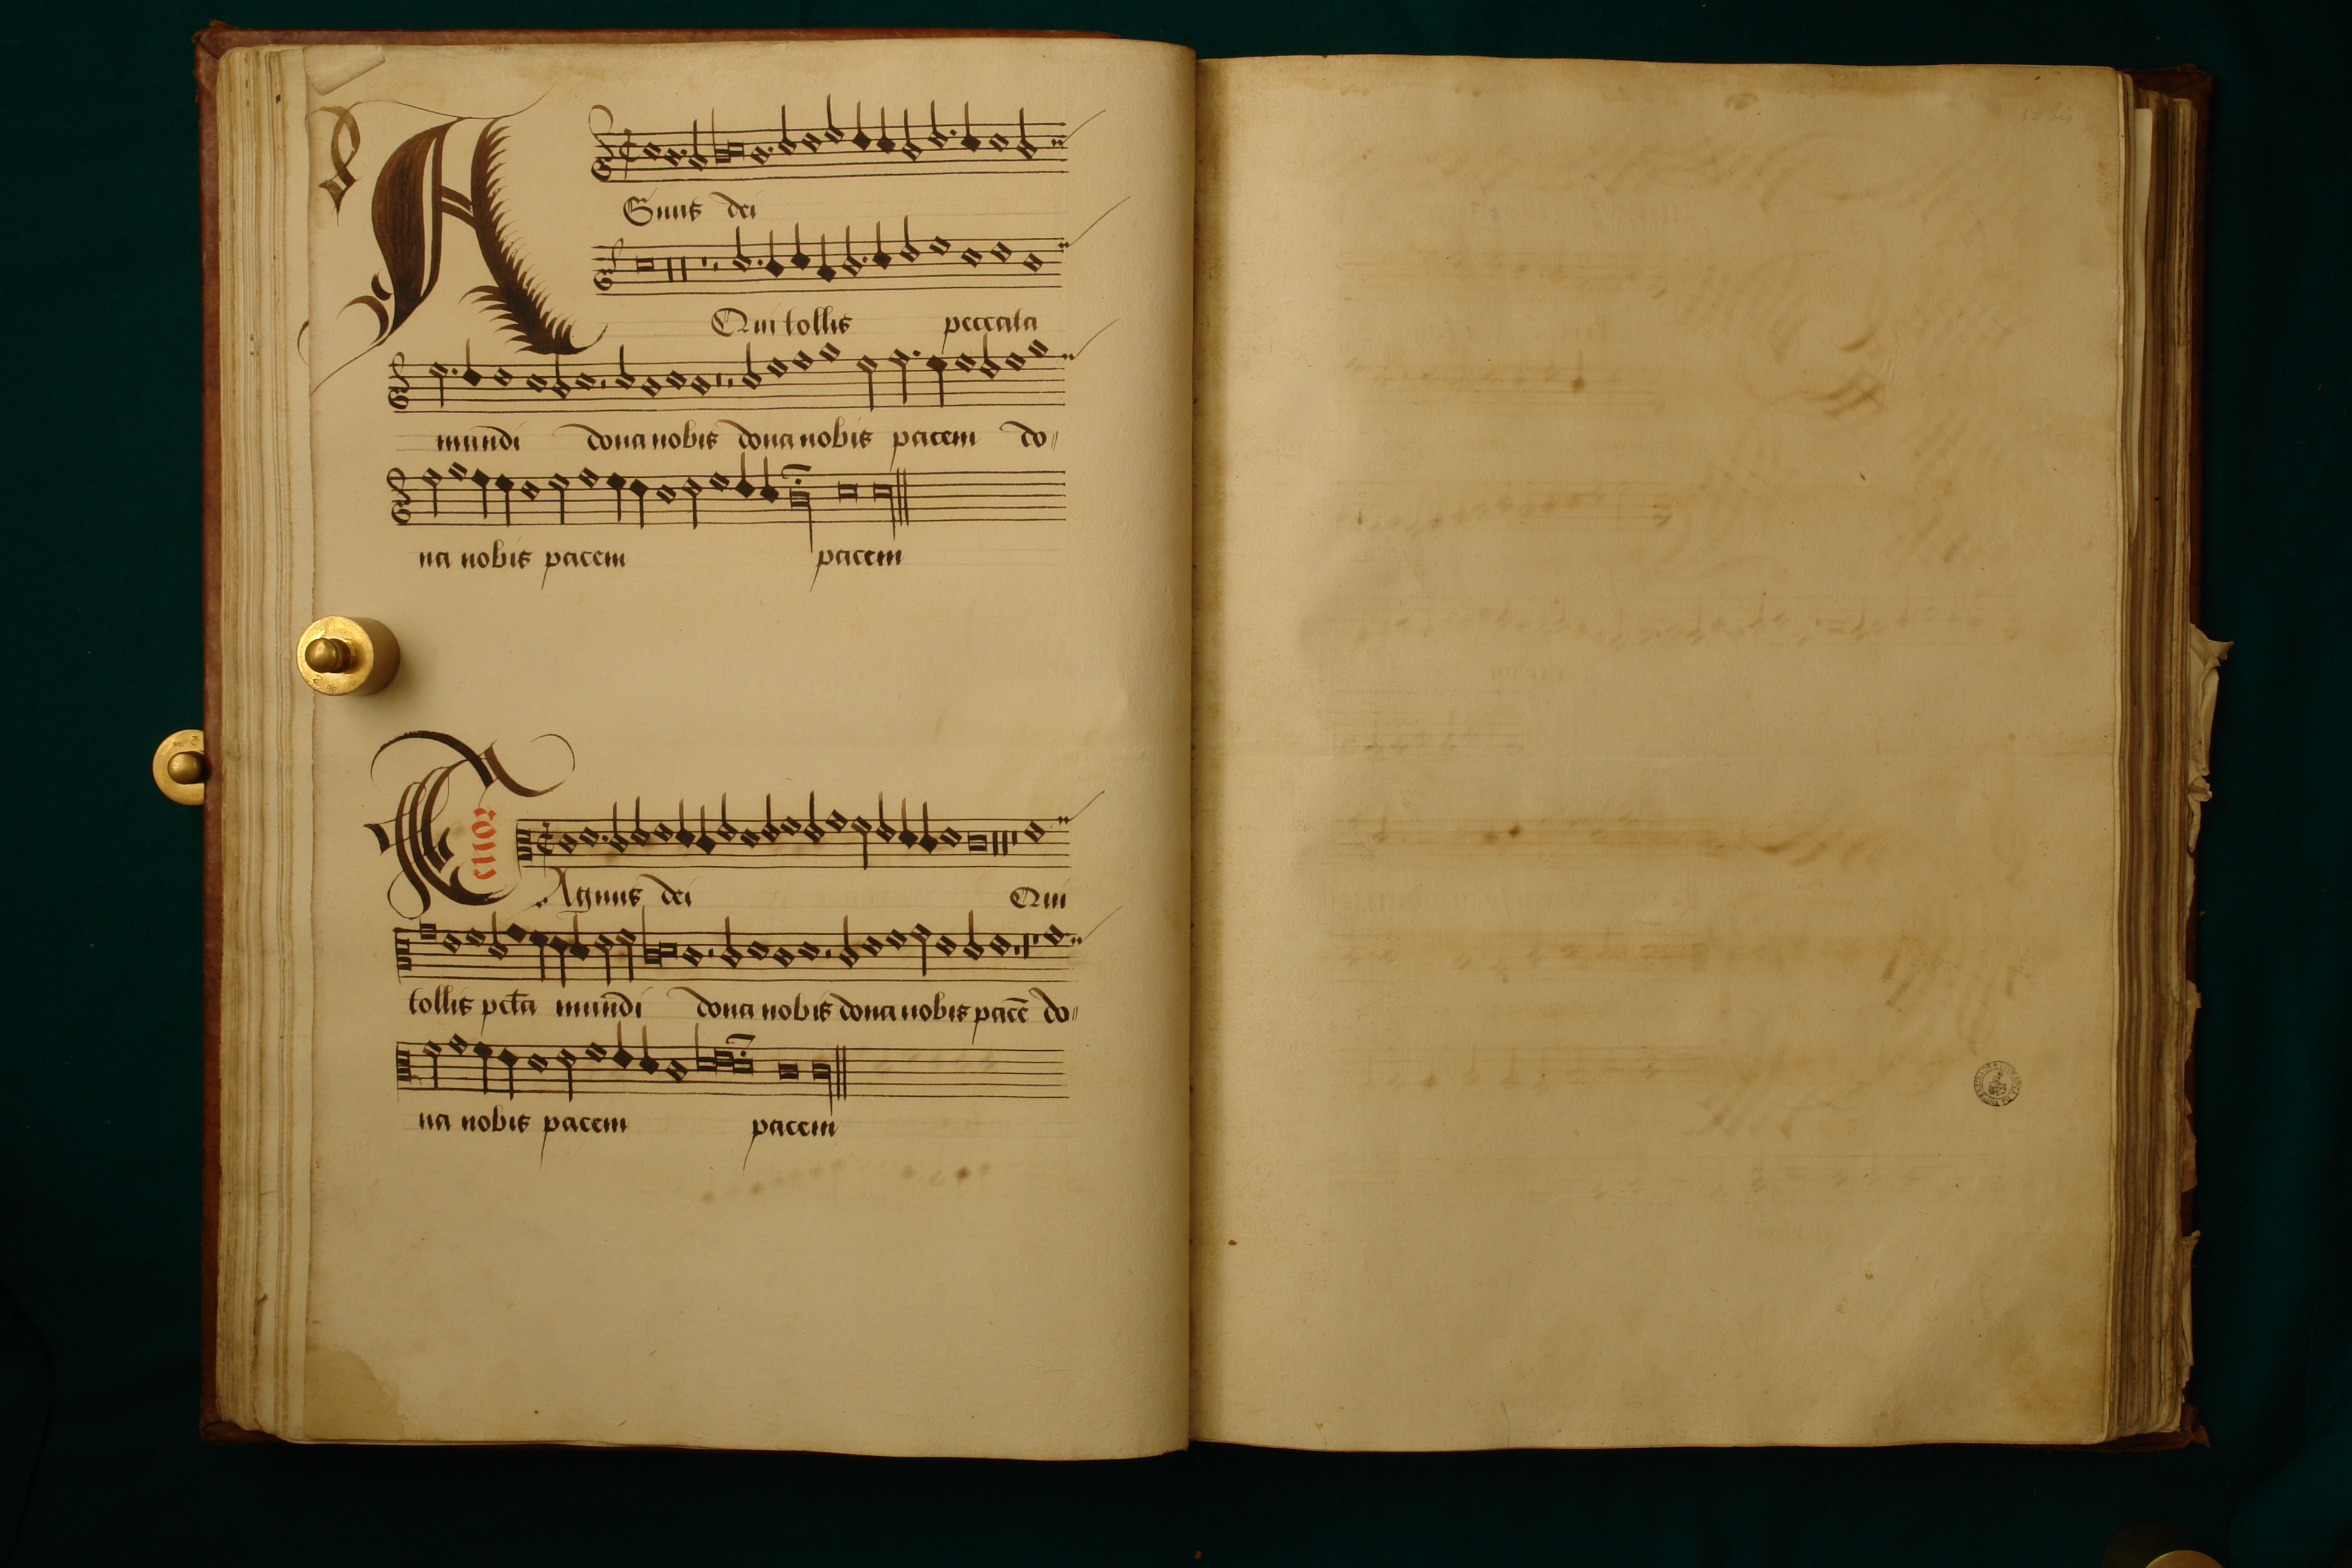 Agnus dei
Qui tollis peccata
mundi dona nobis dona nobis pacem do
na nobis pacem pacem
Tenor
Agnus dei Qui
tollis pctā mundi dona nobis dona nobis pacē do
na nobis pacem pacem